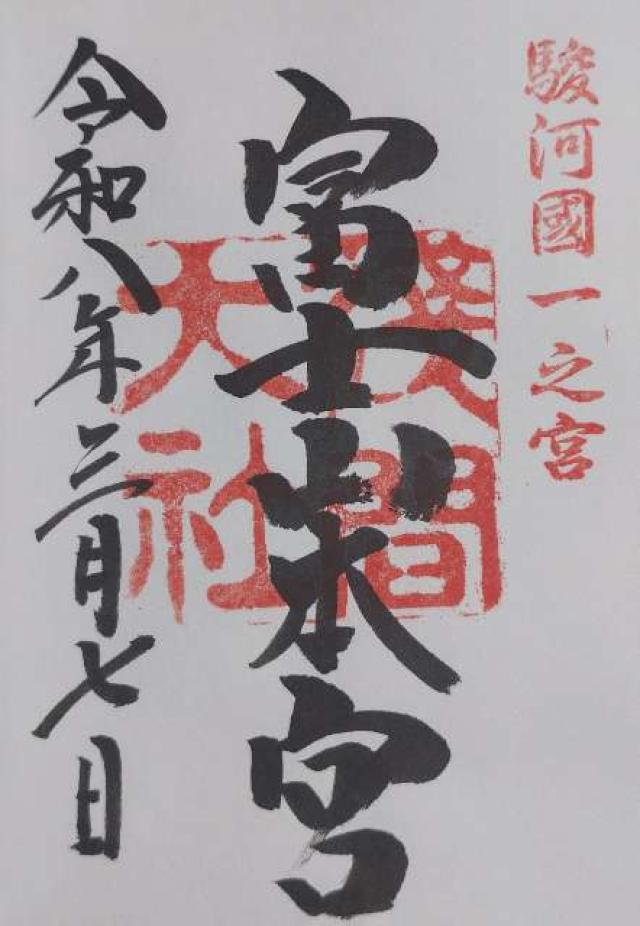 駿河國一之宮
富士山本宮
浅間大社
令和八年三月七日